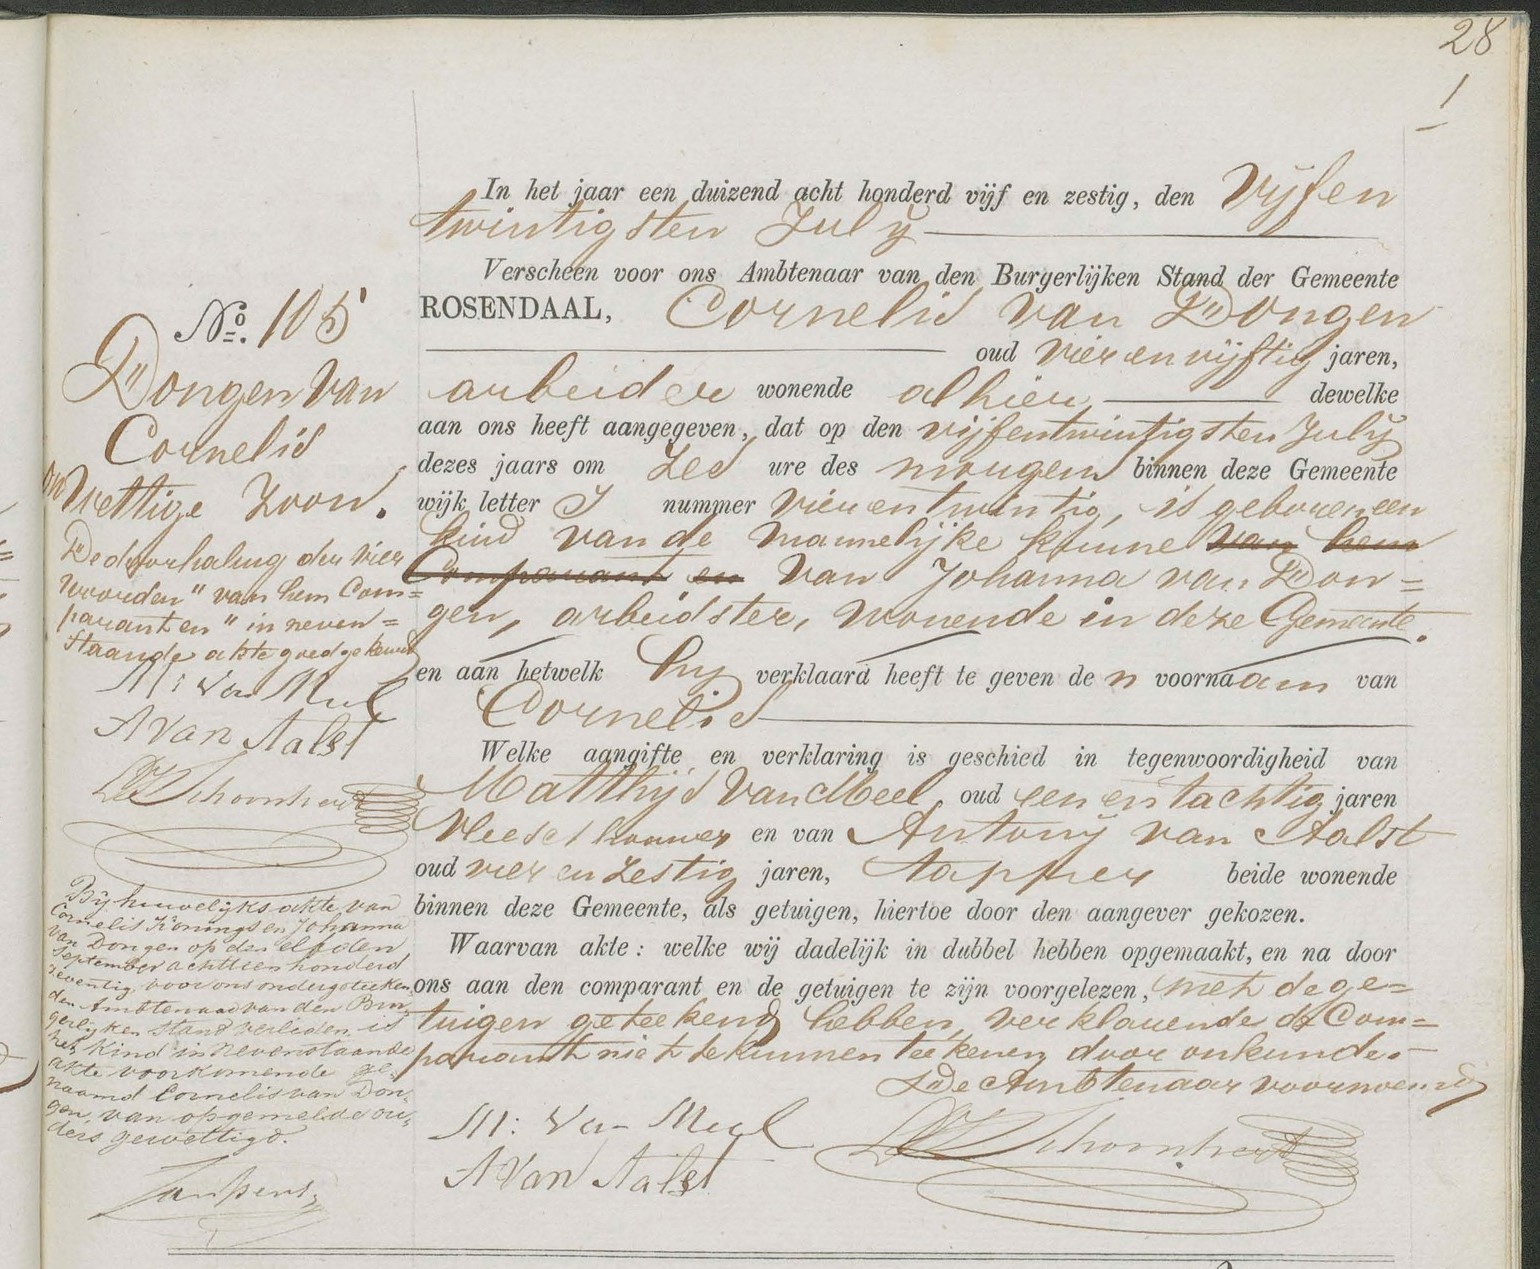 28
1
In het jaar een duizend acht honderd vijf en zestig, den Vijfen
twintigsten July
Verscheen voor ons Ambtenaar van den Burgerlijken Stand der Gemeente
ROSENDAAL, Cornelis van Dongen
oud vier en vijftig jaren,
arbeider wonende alhier dewelke
aan ons heeft aangegeven, dat op den vijfentwintigsten July
dezes jaars om zes ure des morgens binnen deze Gemeente
wijk letter I nummer vierentwintig, is geboren een
kind van de mannelijke kunne van hem
Comparant en van Johanna van Don=
gen, arbeidster, wonende in deze Gemeente.
en aan hetwelk hy verklaard heeft te geven de n voornaam van
Cornelis
Welke aangifte en verklaring is geschied in tegenwoordigheid van
Matthijs van Meel, oud een en tachtig jaren
Vleeschhouwer en van Antony van Aalst
oud vier en zestig jaren, tapper beide wonende
binnen deze Gemeente, als getuigen, hiertoe door den aangever gekozen.
Waarvan akte: welke wij dadelijk in dubbel hebben opgemaakt, en na door
ons aan den comparant en de getuigen te zijn voorgelezen, met de ge=
tuigen geteekend hebben, verklarende de Com=
parant niet te kunnen teekenen door onkunde.
De Ambtenaar voornoemd
M: Van Meel
A Van Aalst
No. 105
Dongen van
Cornelis
on
wettige Zoon.
De doorhaling der vier
woorden "van hem Com=
parant en" in neven=
staande akte goedgekeurd
M: Van Meel
A Van Aalst
Bij huwelijks akte van
Cornelis Konings en Johanna
van Dongen op den elfden
September achttienhonderd
zeventig voor ons ondergeteeken
den Ambtenaar van den Bur
gerlijken Stand verleden, is
het kind in nevenstaande
akte voorkomende ge=
naamd Cornelis van Don=
gen, van opgemelde ou=
ders gewettigd.